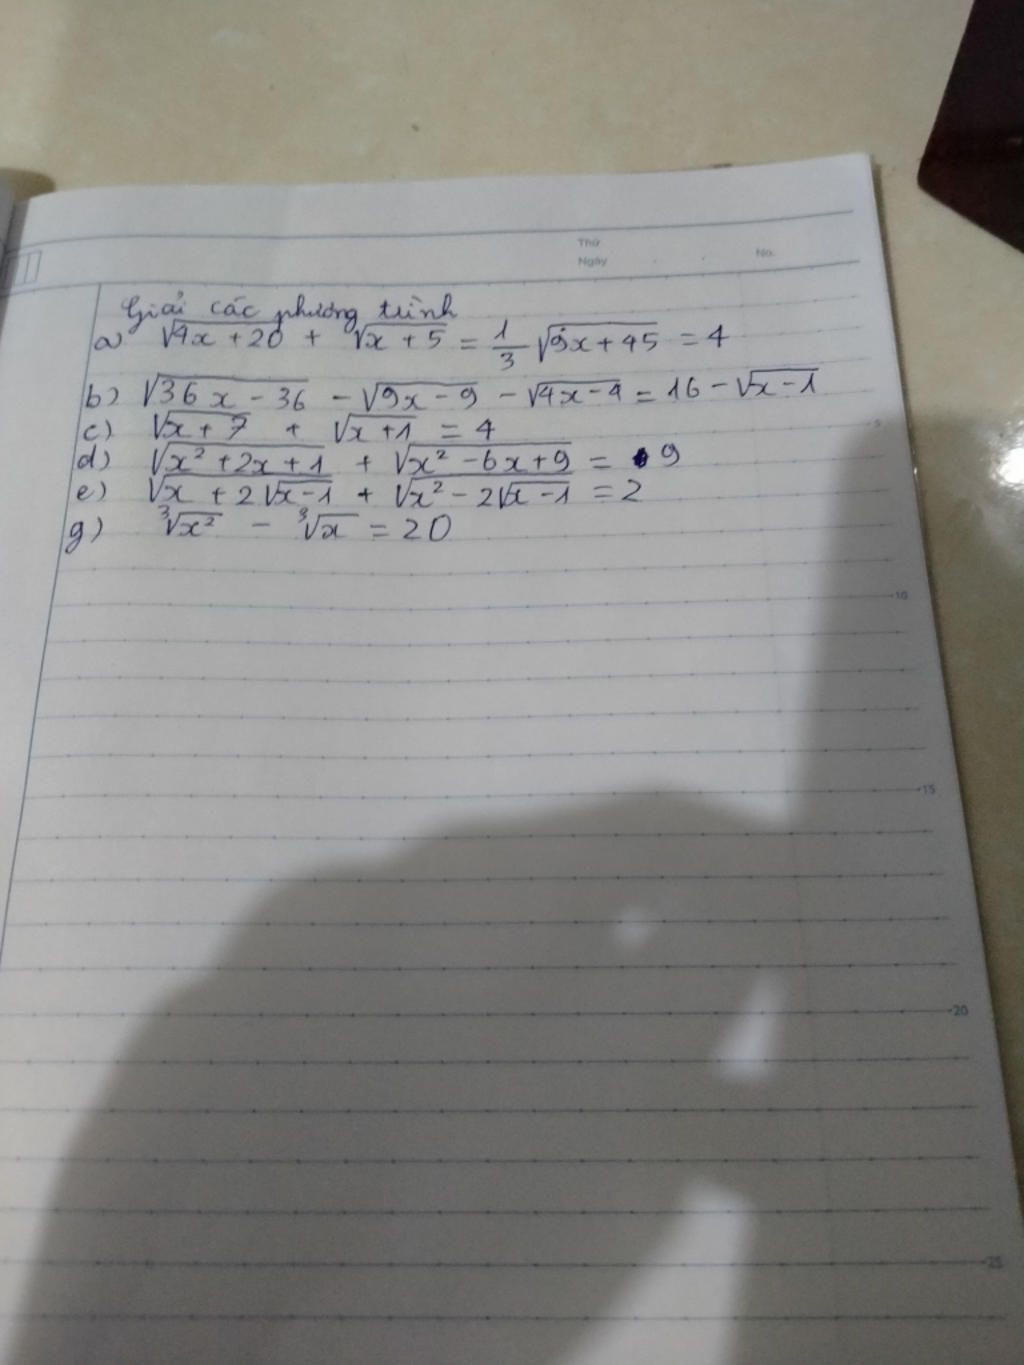 Thứ
Ngày
No.
Giải các phương trình
a) √4x+20 + √x+5 = 1/3 √9x+45 = 4
b) √36x-36 - √9x-9 - √4x-4 = 16 - √x-1
c) √x+7 + √x+1 = 4
d) √x²+2x+1 + √x²-6x+9 = 9
e) √x+2√x-1 + √x²-2√x-1 = 2
g) ³√x² - ³√x = 20
5
10
15
20
25